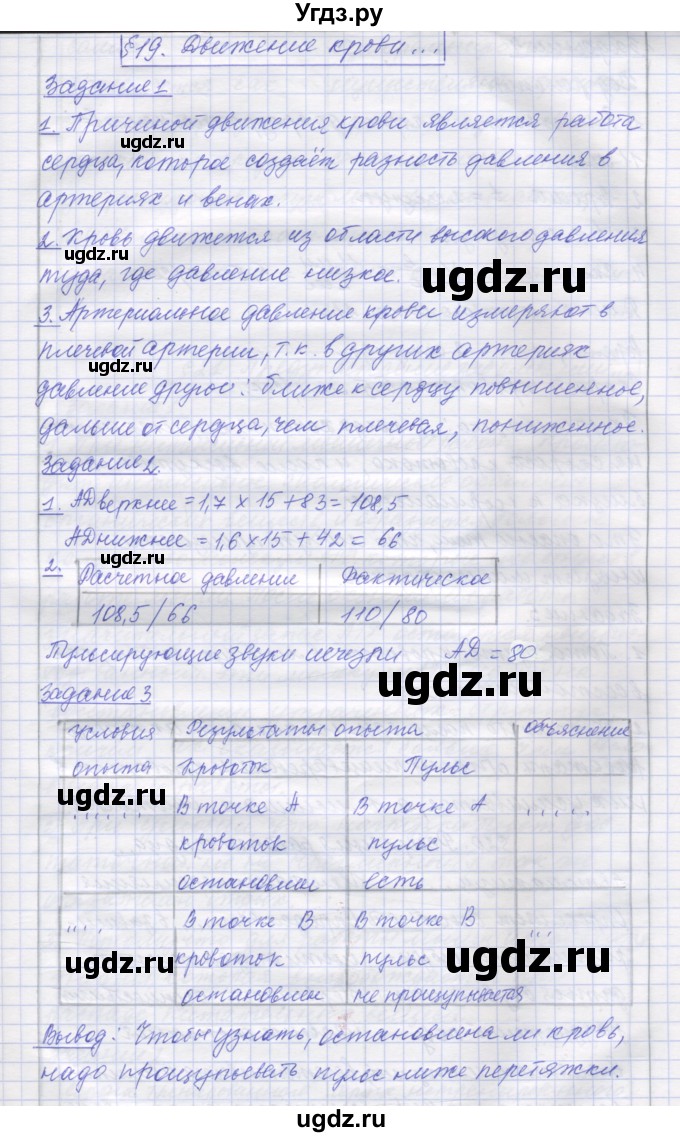 Угдз.ру
§19. Движение крови...
Задание 1
1. Причиной движения крови является работа
сердца, которое создаёт разность давления в
артериях и венах.
2. Кровь движется из области высокого давления
туда, где давление низкое.
ugdz.ru ugdz.ru
3. Артериальное давление крови измеряют в
плечевой артерии, т.к. в других артериях
давление другое: ближе к сердцу повышенное,
дальше от сердца, чем плечевая, пониженное.
Задание 2.
1. АДверхнее = 1,7 × 15 + 83 = 108,5
ugdz.ru
АДнижнее = 1,6 × 15 + 42 = 66
ugdz.ru
2. Расчетное давление Фактическое
108,5/66 110/80
Пульсирующие звуки исчезли АД = 80
ugdz.ru
Задание 3
Условия Результаты опыта Объяснение
опыта Кровоток Пульс
ugdz.ru
..... В точке А В точке А .....
кровоток пульс
остановлен есть
... В точке В В точке В ...
ugdz.ru ugdz.ru
кровоток пульс
остановлен не прощупывается
Вывод: Чтобы узнать, остановлена ли кровь,
надо прощупывать пульс ниже перетяжки.
ugdz.ru